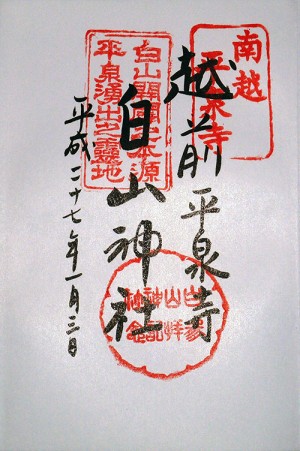 南越
平泉寺
越前 平泉寺
白山神社
白山開闢之本源
平泉湧出之靈地
平成二十七年一月三日